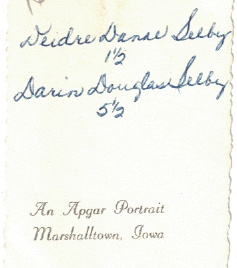 Deidre Danae Selby
1 1/2
Darin Douglas Selby
5 1/2
An Apgar Portrait
Marshalltown, Iowa